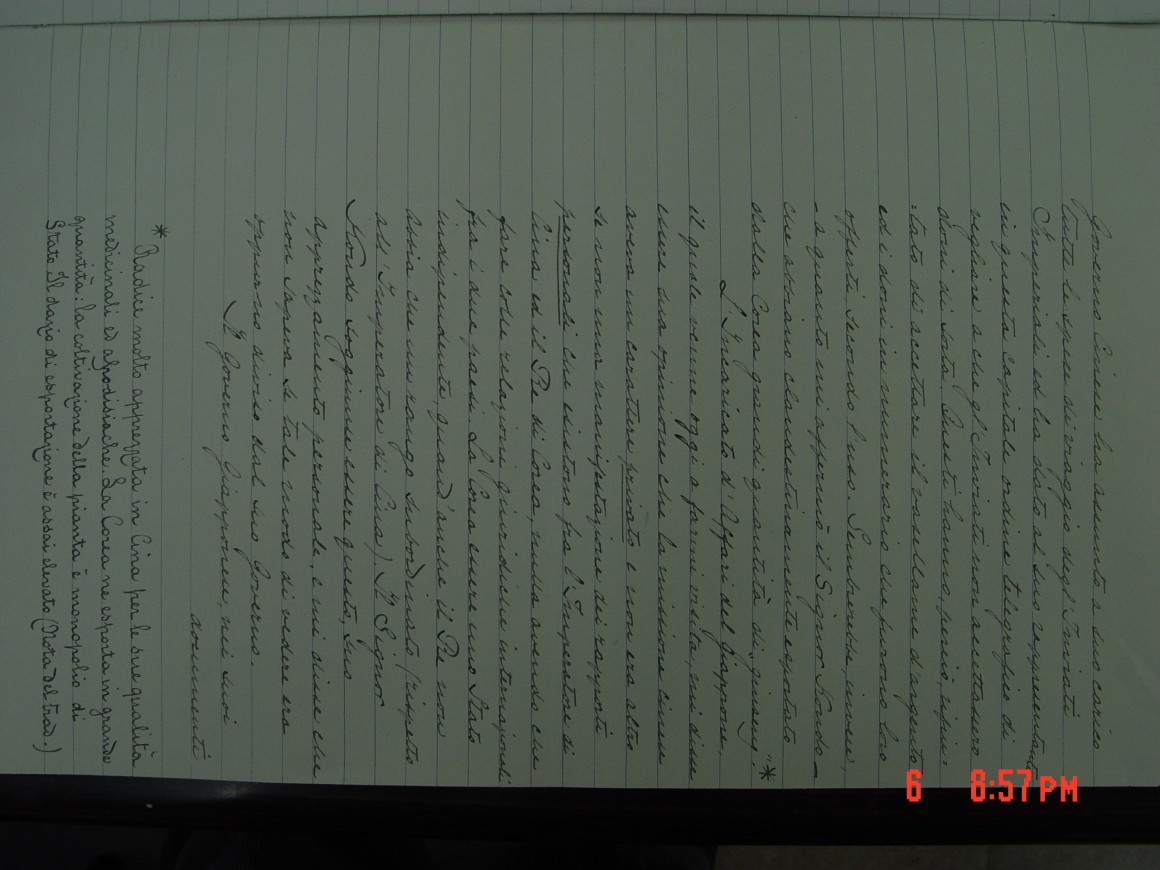 Governo Cinese ha assunto a suo carico
tutte le spese di viaggio degl'Inviati
Imperiali ed ha dato al suo rappresentante
in questa Capitale ordine telegrafico di
vegliare a che gl'Inviati non accettassero
doni di sorta. Questi hanno perciò rifiu=
=tato di accettare il vasellame d'argento
ed i doni in numerario che furono loro
offerti secondo l'uso. Sembrerebbe, invece,
- a quanto mi affermò il Signor Kondo -
che abbiano clandestinamente esportato
dalla Corea grandi quantità di „ginseng".*
L'Incaricato d'Affari del Giappone,
il quale venne oggi a farmi visita, mi disse
essere sua opinione che la missione cinese
aveva un carattere privato e non era altro
se non una manifestazione di rapporti
personali che esistono fra l'Imperatore di
Cina ed il Re di Corea, nulla avendo che
fare colle relazioni giuridiche internazionali
fra i due paesi. La Corea essere uno Stato
indipendente, quand'anche il Re non
abbia che un rango subordinato (rispetto
all'Imperatore di Cina). Il Signor
Kondo soggiunse essere questo, suo
apprezzamento personale, e mi disse che
non sapeva se tale modo di vedere era
o meno diviso dal suo Governo.
Il Governo Giapponese, nei suoi
documenti
* Radice molto apprezzata in Cina per le sue qualità
medicinali ed afrodisiache. La Corea ne esporta in grande
quantità: la coltivazione della pianta è monopolio di
Stato. Il dazio di esportazione è assai elevato (Nota del trad.)
6 8:57 PM